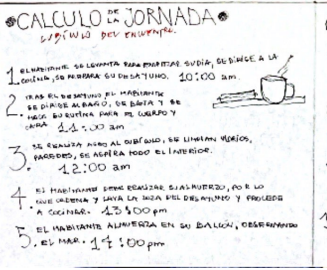 CALCULO DE LA JORNADA
CUBÍCULO DEL ENCUENTRO.
1. EL HABITANTE SE LEVANTA PARA EMPEZAR SU DÍA, SE DIRIGE A LA
COCINA, SE PREPARA SU DESAYUNO. 10:00 am
2. TRAS EL DESAYUNO EL HABITANTE
SE DIRIGE AL BAÑO, SE BAÑA Y SE
HACE SU RUTINA PARA EL CUERPO Y
CARA 11:00 am
3. SE REALIZA ASEO AL CUBÍCULO, SE LIMPIAN VIDRIOS,
PAREDES, SE ASPIRA TODO EL INTERIOR.
12:00 am
4. EL HABITANTE DEBE REALIZAR SU ALMUERZO, POR LO
QUE ORDENA Y LAVA LA LOZA DEL DESAYUNO Y PROCEDE
A COCINAR. 13:00pm
5. EL HABITANTE ALMUERZA EN SU BALCÓN, OBSERVANDO
EL MAR. 14:00pm